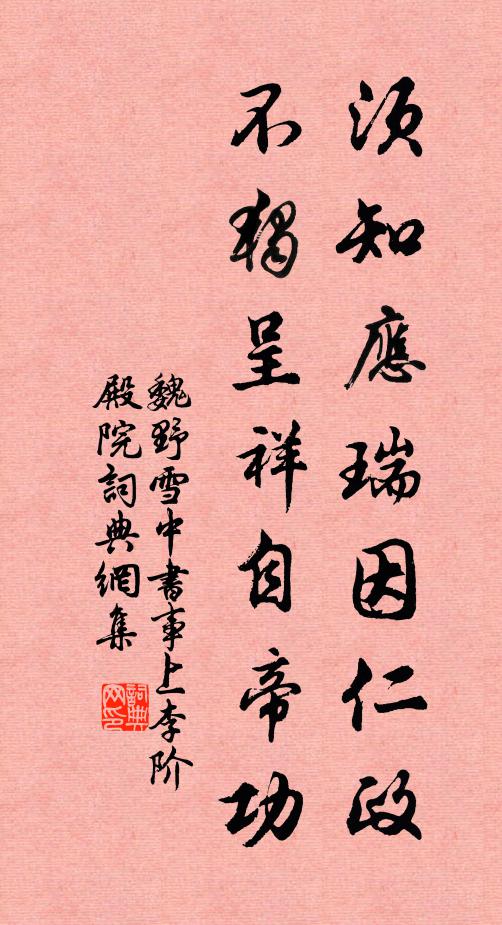 須知應瑞因仁政
不獨呈祥自帝功
魏野雪中書事上李阶
殿院詞典網集
詞典
网印